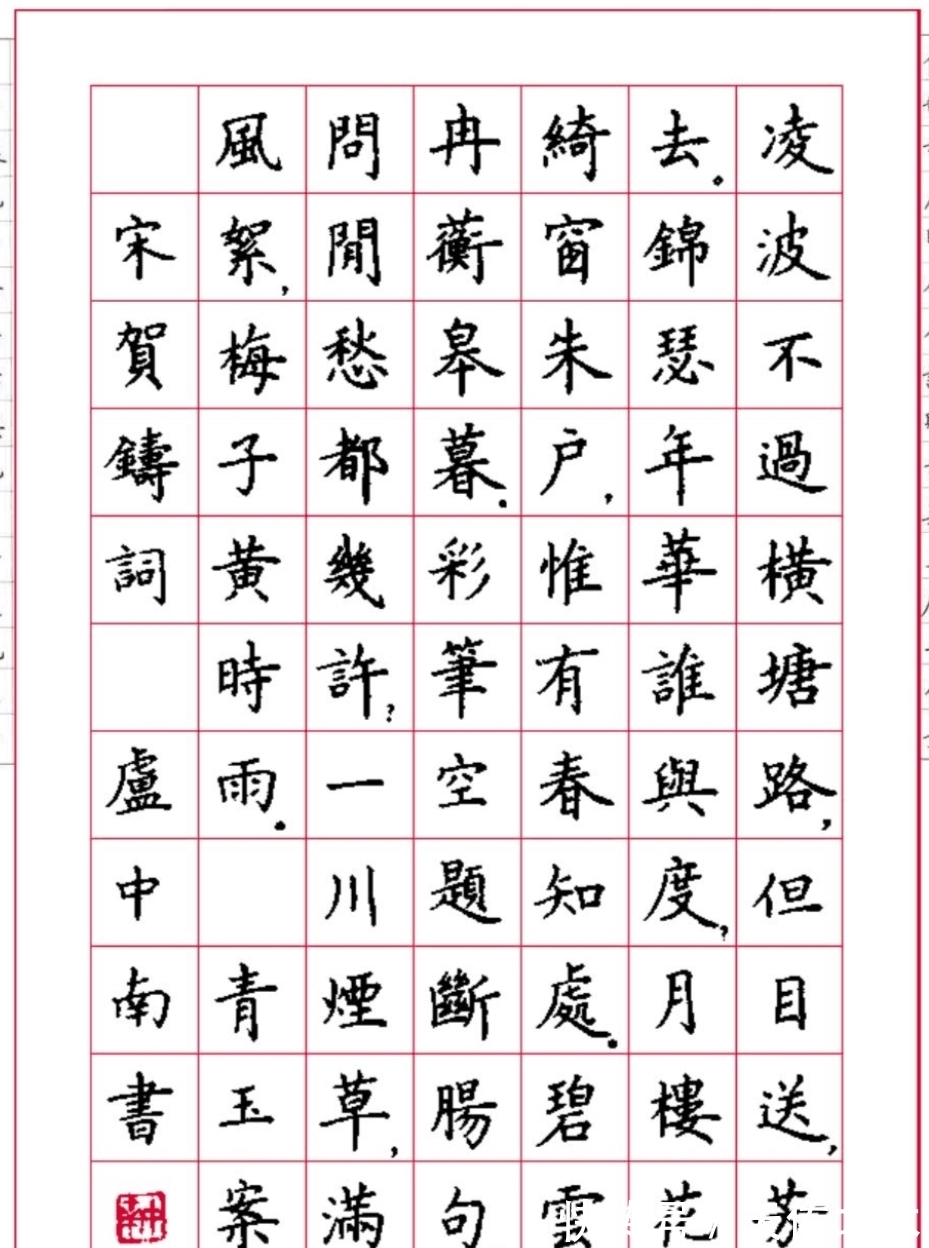 凌波不過橫塘路，但目送，芳
去。錦瑟年華誰與度？月樓花
綺窗朱户，惟有春知處。碧雲
冉蘅皋暮。彩筆空題斷腸句
問閒愁都幾許？一川煙草，滿
風絮，梅子黄時雨。 青玉案
宋賀鑄詞 盧中南書